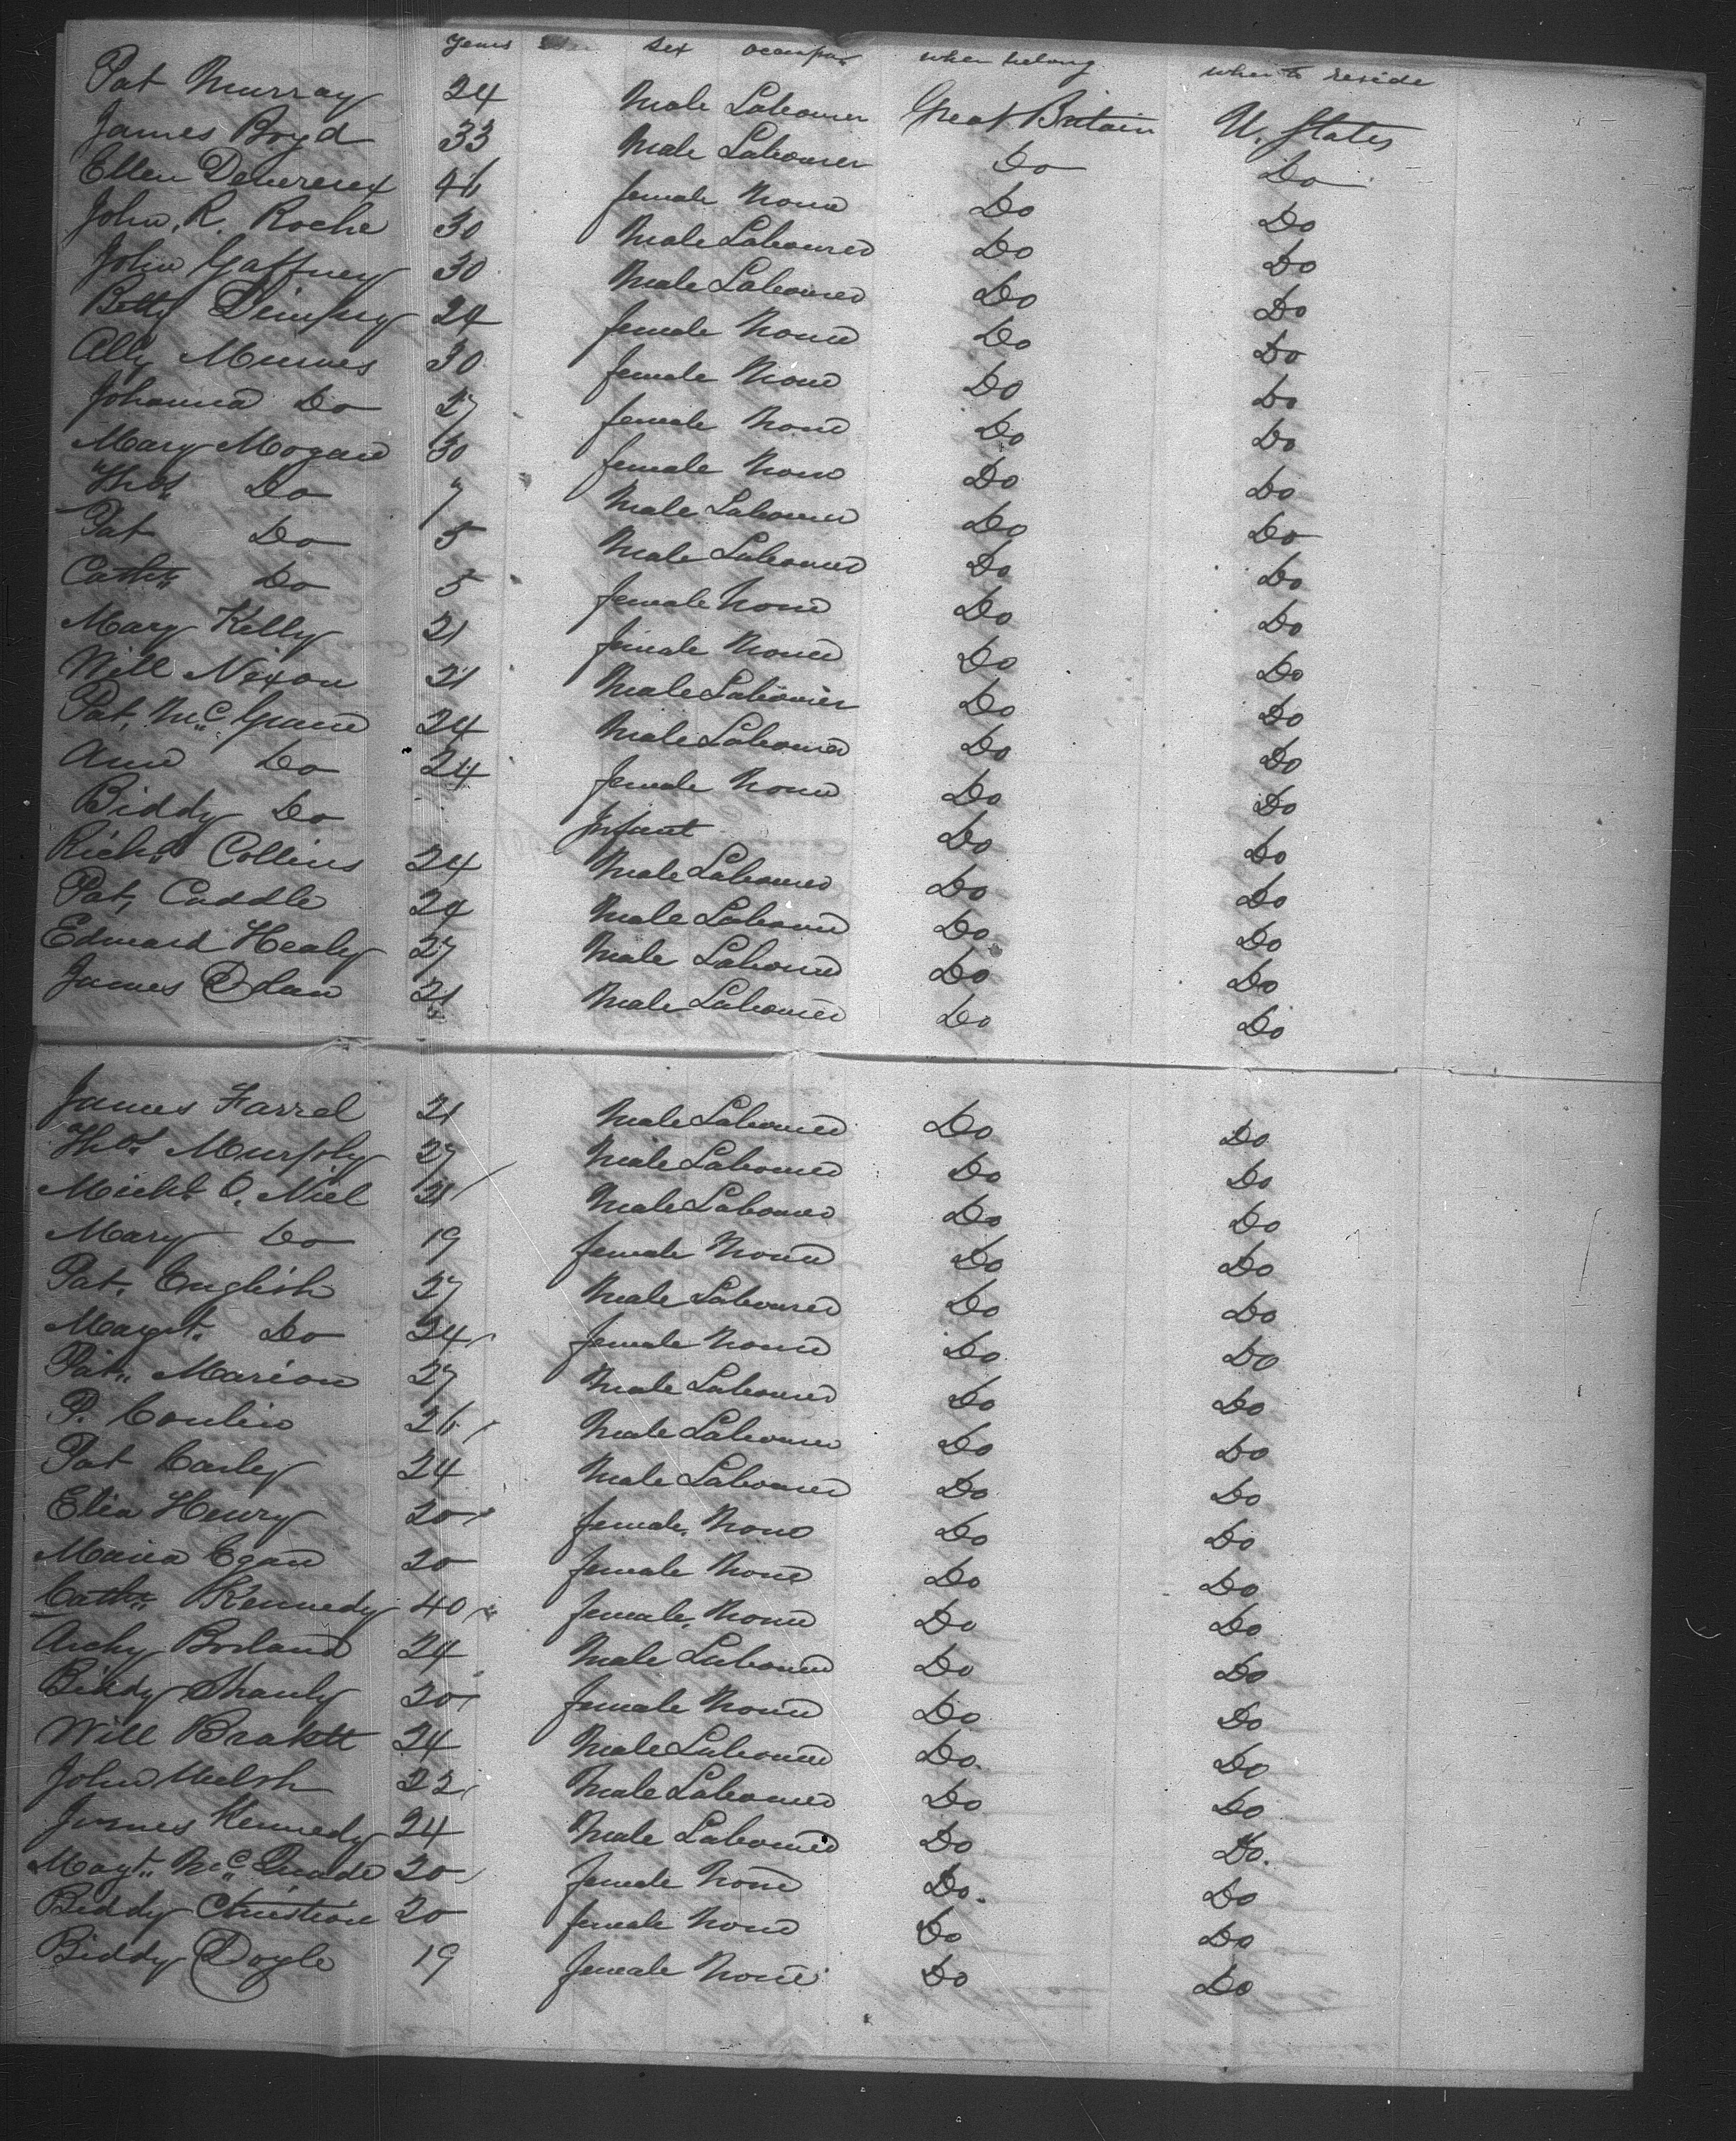 years sex occupan when belong when to reside
Pat Murray 24 Male Labourer Great Britain U. States
James Boyd 33 Male Labourer Do Do
Ellen Devereux female None Do Do
John. R. Roche 30 Male Labourer Do Do
John Gaffney 30 Male Labourer Do Do
Betty 24 female None Do Do
Ally 30 female None Do Do
Johanna Do 27 female None Do Do
Mary Mogan 30 female None Do Do
Thos. Do 7 Male Labourer Do Do
Pat Do 5 Male Labourer Do Do
Cathe. Do 5 female None Do Do
Mary Kelly 21 female None Do Do
Will Nixon 21 Male Labourer Do Do
Pat. Mc. Grane 24 Male Labourer Do Do
Ann Do 24 female None Do Do
Biddy Do Infant Do Do
Richd. Collins 24 Male Labourer Do Do
Pat, Caddle 24 Male Labourer Do Do
Edward Healy 27 Male Labourer Do Do
James Dolan 21 Male Labourer Do Do
James Farrel 21 Male Labourer Do Do
Thos. Murphy 27 Male Labourer Do Do
Michl. O. Niel 21 Male Labourer Do Do
Mary Do 19 female None Do Do
Pat. English 27 Male Labourer Do Do
Magt. Do 24 female None Do Do
Pat. Marion 27 Male Labourer Do Do
P. Conlin 26 Male Labourer Do Do
Pat Carley 24 Male Labourer Do Do
Eliza Henry 20 female. None Do Do
Maria Egan 20 female None Do Do
Cathe. Kennedy 40 female. None Do Do
Archy Borland 24 Male Labourer Do Do
Biddy Shanly 20 female None Do Do
Will Brakett 24 Male Labourer Do. Do
John Welsh 22 Male Labourer Do Do
James Kennedy 24 Male Labourer Do Do.
Magt. Mc. Quade 20 female None Do. Do
Biddy Christian 20 female None Do Do
Biddy Doyle 19 female None Do Do